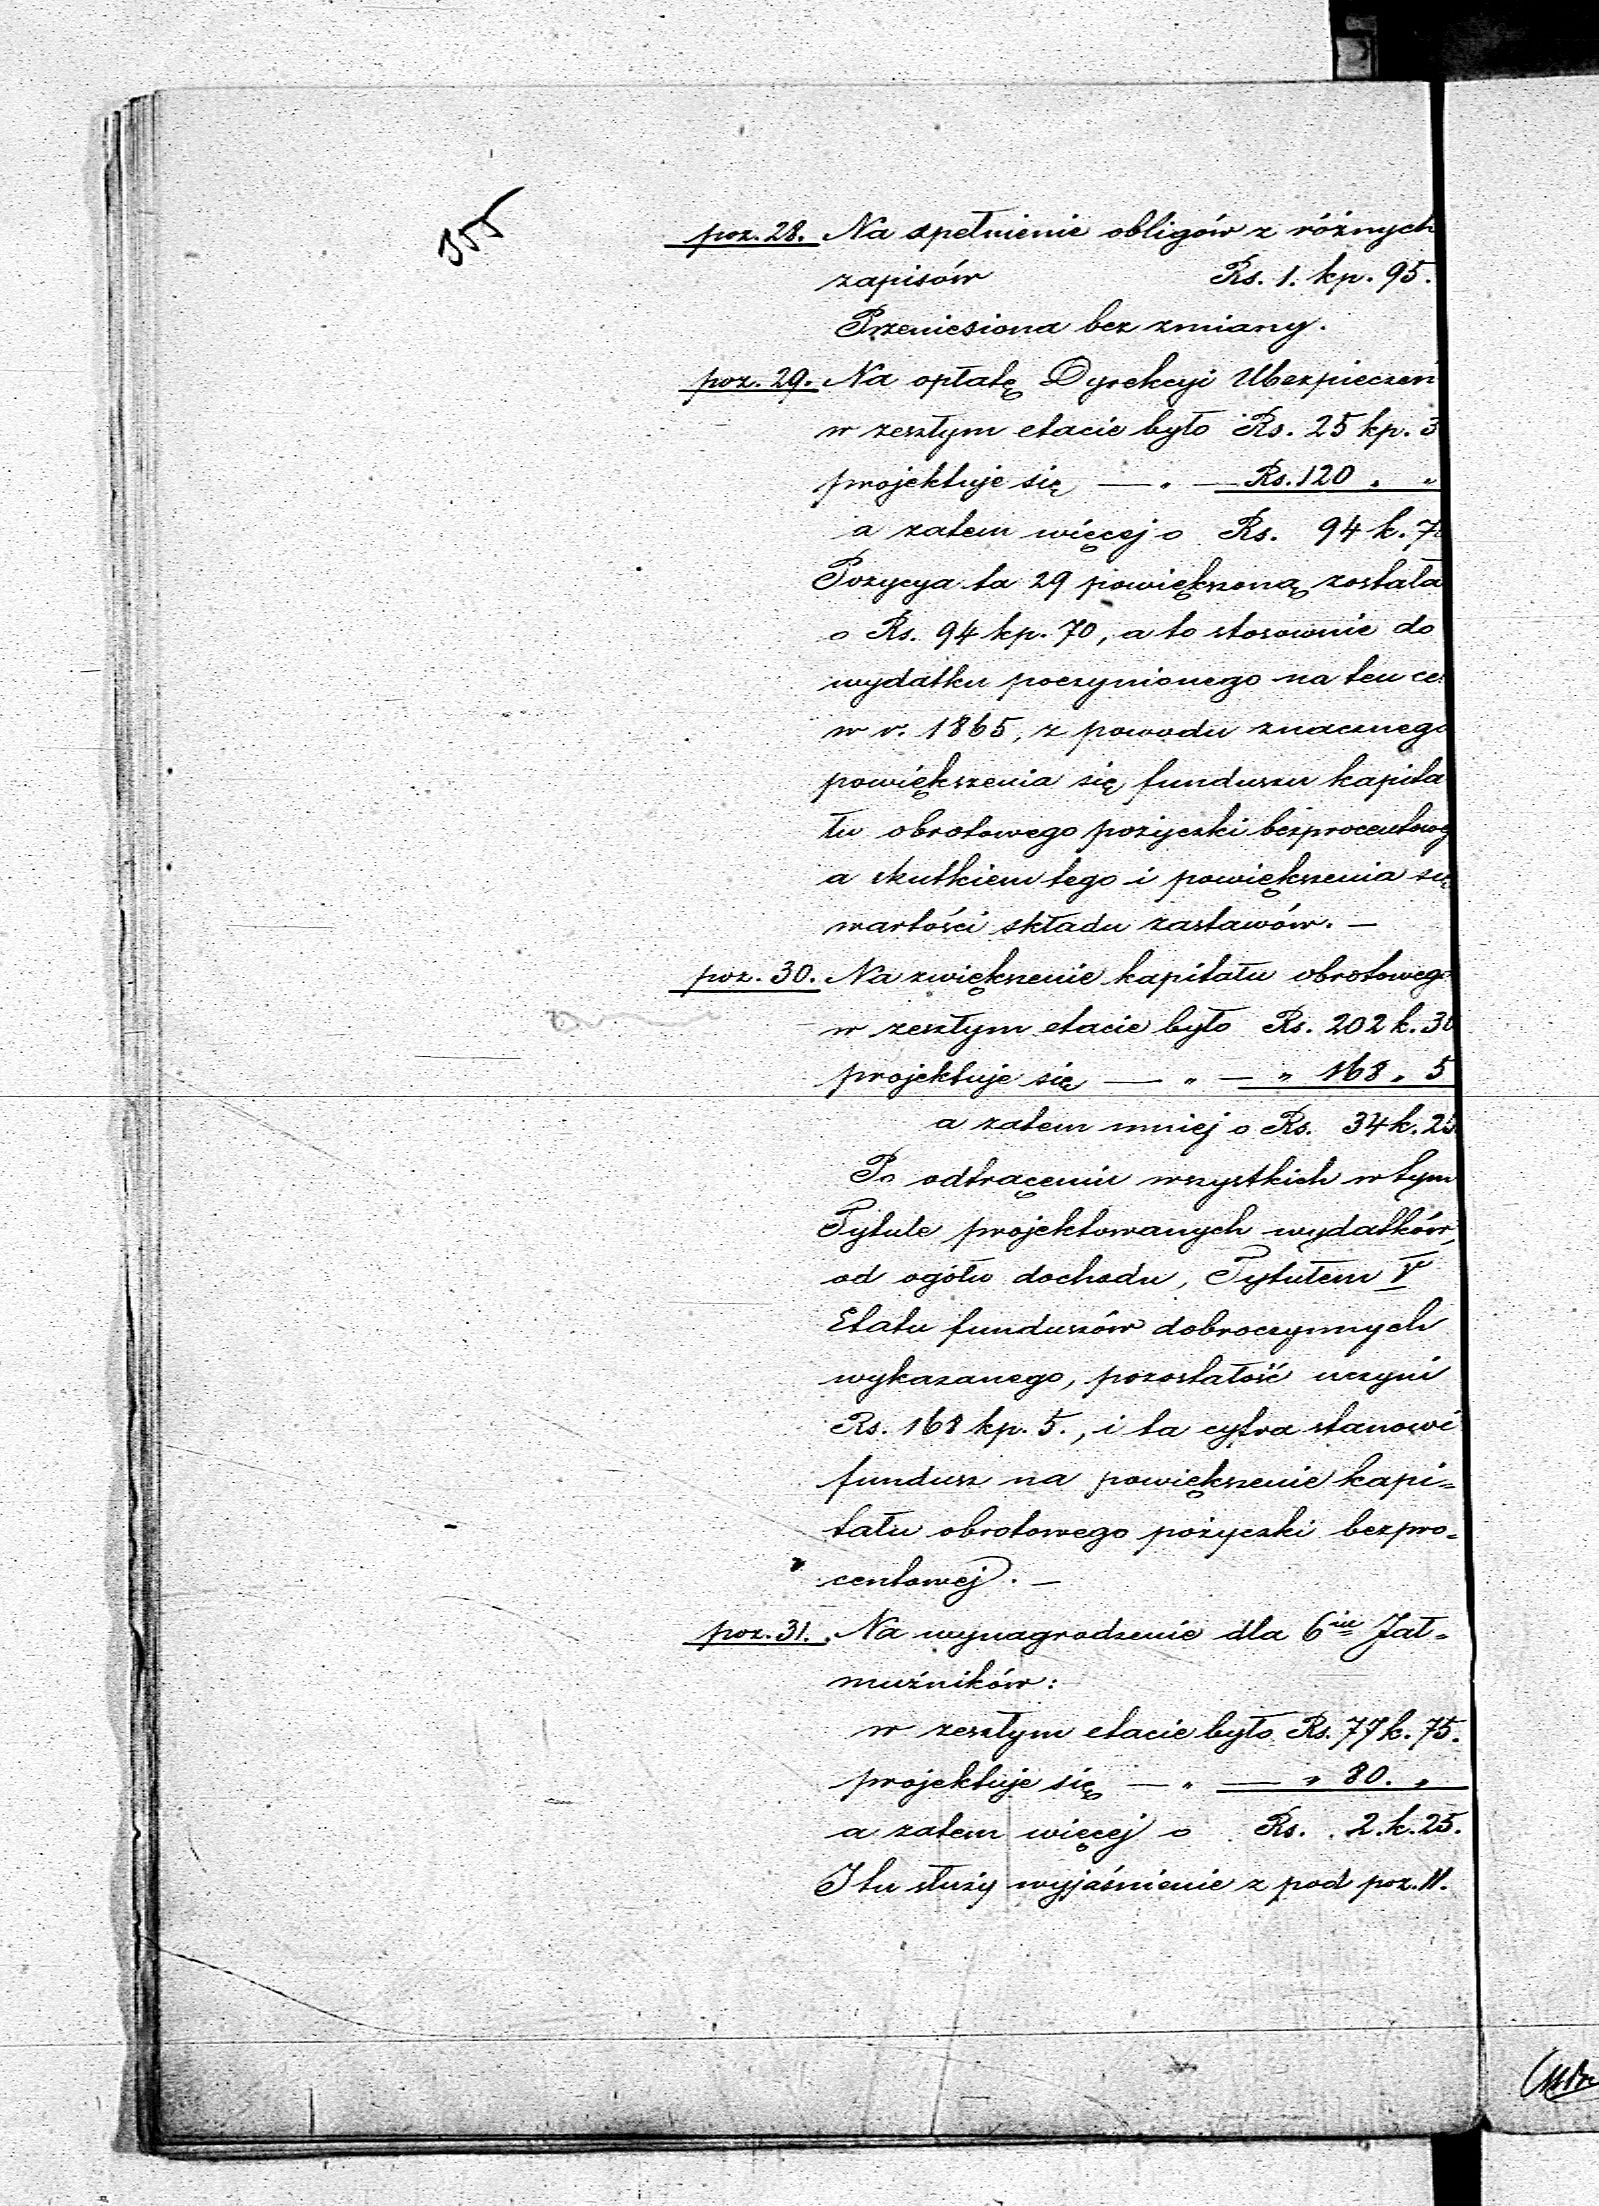 355
poz. 28. Na spełnienie obligów z różnych
zapisów Rs. 1. kp. 95.
Przeniesiona bez zmiany.
poz. 29. Na opłatę Dyrekcyi Ubezpieczeń
w zeszłym etacie było Rs. 25 kp. 3
projektuje się — „ — Rs. 120 „ „
a zatem więcej o Rs. 94 k. 7
Pozycya ta 29 powiększoną została
o Rs. 94 kp. 70, a to stosownie do
wydatku poczynionego na ten ce
w r. 1865, z powodu znacznego
powiększenia się funduszu kapita
łu obrotowego pożyczki bezprocentowej
a skutkiem tego i powiększenia się
wartości składu zastawów. —
poz. 30. Na zwiększenie kapitału obrotowego
w zeszłym etacie było Rs. 202 k. 30
projektuje się — „ — „ 168 „ 5
a zatem mniej o Rs. 34 k. 25
Po odtrąceniu wszystkich w tym
Tytule projektowanych wydatków,
od ogółu dochodu, Tytułem V
Etatu funduszów dobroczynnych
wykazanego, pozostałość uczyni
Rs. 168 kp. 5., i ta cyfra stanowi
fundusz na powiększenie kapi=
tału obrotowego pożyczki bezpro=
centowej. —
poz. 31. Na wynagrodzenie dla 6iu Jał=
mużników:
w zeszłym etacie było Rs. 77 k. 75.
projektuje się — „ — „ 80. „
a zatem więcej o Rs. 2. k. 25.
I tu służy wyjaśnienie z pod poz. 11.